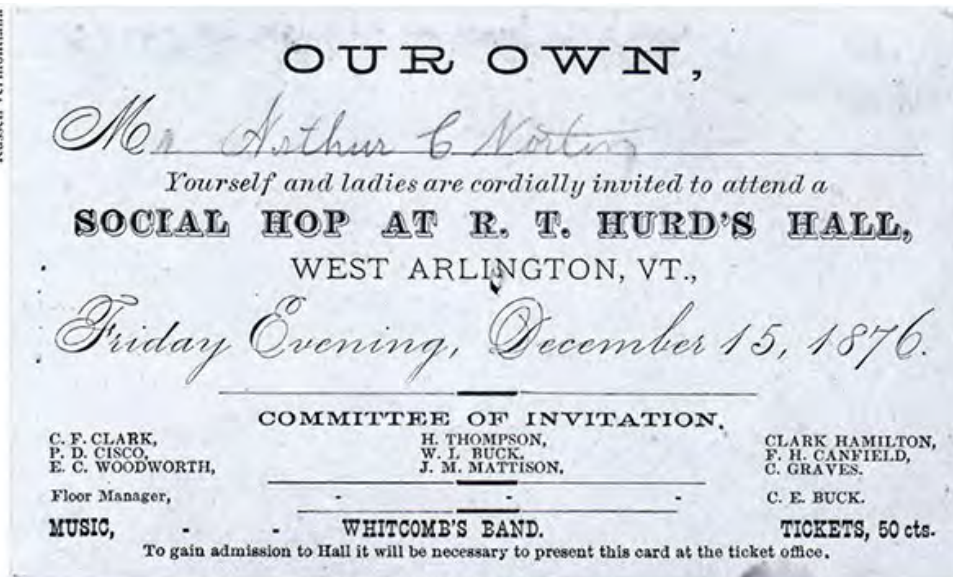 OUR OWN,
Mr Arthur C Norton
Yourself and ladies are cordially invited to attend a
SOCIAL HOP AT R. T. HURD'S HALL,
WEST ARLINGTON, VT.,
Friday Evening, December 15, 1876.
COMMITTEE OF INVITATION.
C. F. CLARK, H. THOMPSON, CLARK HAMILTON,
P. D. CISCO, W. L. BUCK. F. H. CANFIELD,
E. C. WOODWORTH, J. M. MATTISON, C. GRAVES.
Floor Manager, - - - C. E. BUCK.
MUSIC, - - WHITCOMB'S BAND. TICKETS, 50 cts.
To gain admission to Hall it will be necessary to present this card at the ticket office.